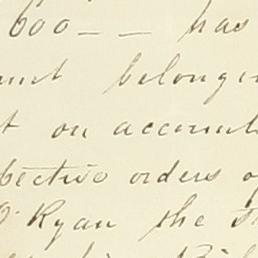 600 — — has
unt belongin
t on account
pective orders of
O'Ryan the s